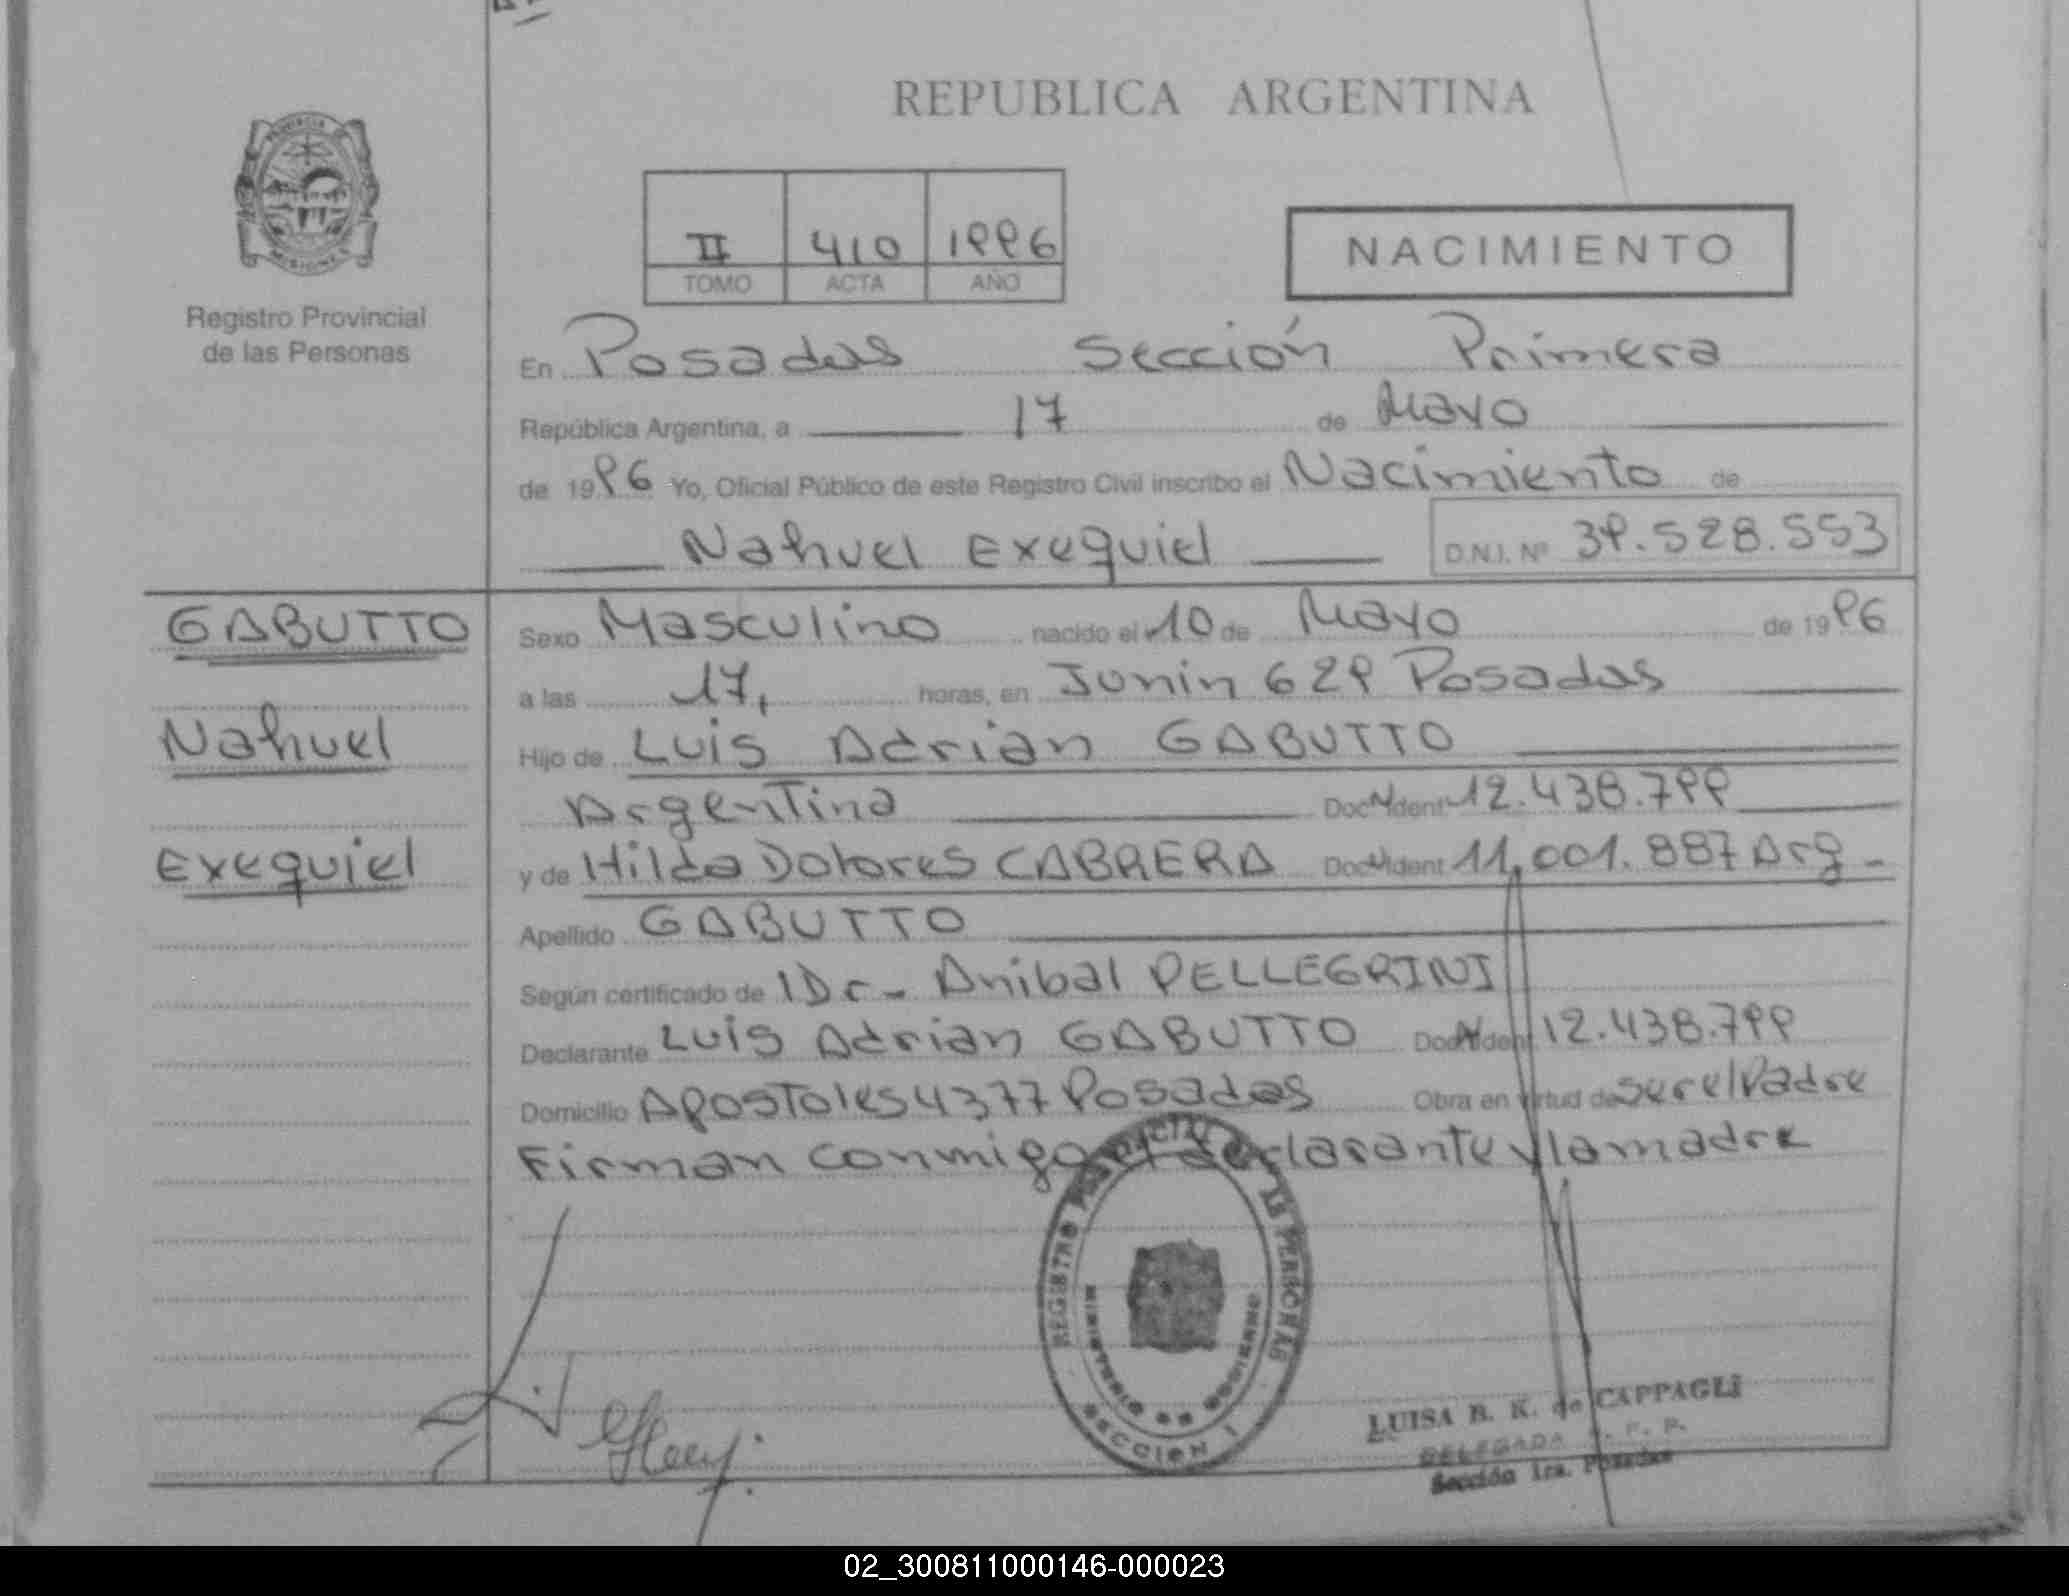 REPUBLICA ARGENTINA
PROVINCIA DE
MISIONES
Registro Provincial
de las Personas
II 410 1996
TOMO ACTA AÑO
NACIMIENTO
En Posadas Sección Primera
República Argentina, a 17 de Mayo
de 1996 Yo, Oficial Público de este Registro Civil inscribo el Nacimiento de
Nahuel Exequiel D.N.I. Nº 39.528.553
GABUTTO
Nahuel
Exequiel
Sexo Masculino nacido el 10 de Mayo de 1996
a las 17, horas, en Junin 629 Posadas
Hijo de Luis Adrian GABUTTO
Argentina Doc N Ident 12.438.799
y de Hilda Dolores CABRERA Doc N Ident 11.001.887 Arg -
Apellido GABUTTO
Según certificado de 1Dr- Anibal PELLEGRINI
Declarante Luis Adrian GABUTTO Doc N Ident 12.438.799
Domicilio Apostoles 4377 Posadas Obra en virtud de ser el Padre
Firman conmigo el declarante y la madre
REGISTRO PROVINCIAL DE LAS PERSONAS
MINISTERIO DE GOBIERNO
SECCION I
LUISA B. K. de CAPPAGLI
DELEGADA R. P. P.
Sección 1ra. Posadas
02_300811000146-000023